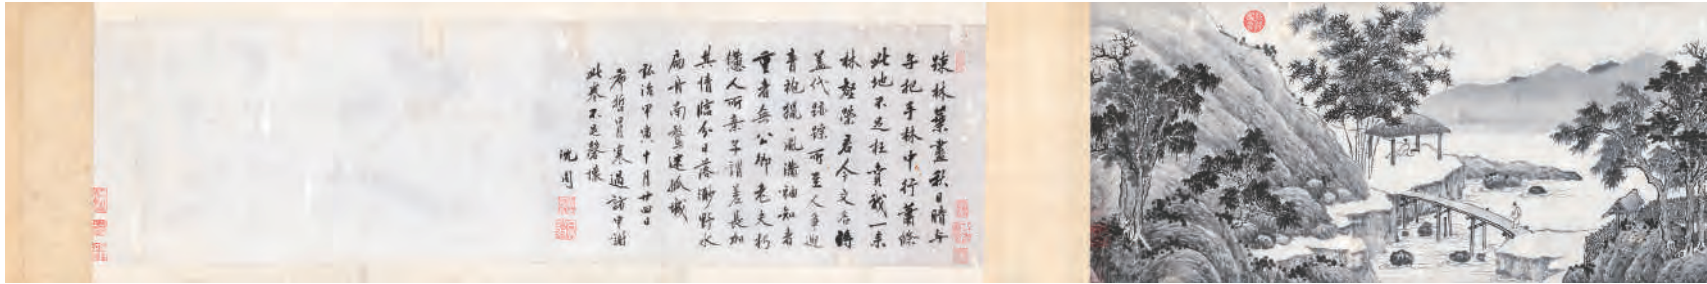 疎林葉盡秋日晴與
君把手林中行蕭條
此地不足枉賁我一來
林壑榮君今文名將
蓋代跡踪所至人爭迎
青袍獵獵風滿袖知者
重者無公卿老夫朽
懷人所棄子謂差長加
其情臨分日落澗野水
扁舟南鶩還孤城
弘治甲寅十月廿四日
君哲冒寒過訪申謝
此寒不足罄懷
沈周